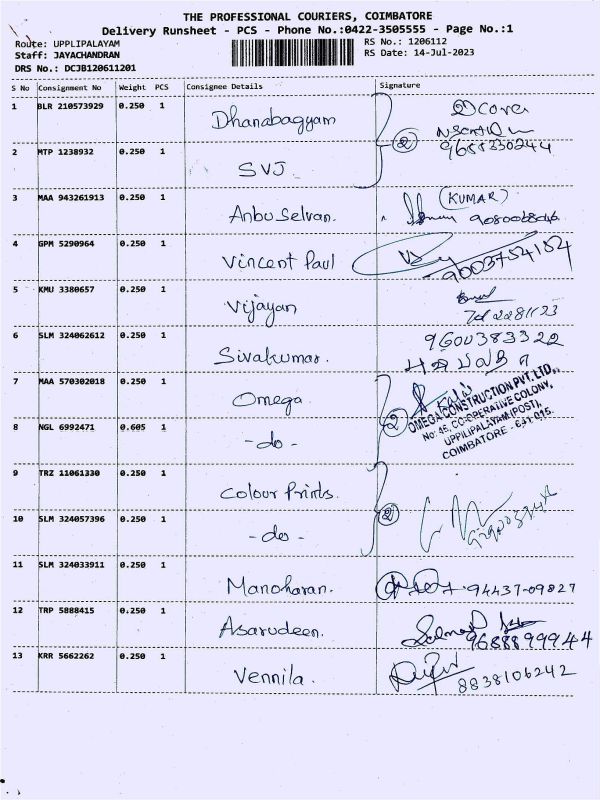 THE PROFESSIONAL COURIERS, COIMBATORE
Delivery Runsheet - PCS - Phone No.:0422-3505555 - Page No.:1
Route: UPPLIPALAYAM RS No.: 1206112
Staff: JAYACHANDRAN RS Date: 14-Jul-2023
DRS No.: DCJB120611201
S No Consignment No Weight PCS Consignee Details Signature
1 BLR 210573929 0.250 1 Dhanabagyam
2 MTP 1238932 0.250 1 SVJ 2 9688330244
3 MAA 943261913 0.250 1 Anbu Selvan. (KUMAR)
4 GPM 5290964 0.250 1 Vincent Paul 9003754184
5 KMU 3380657 0.250 1 Vijayan
6 SLM 324062612 0.250 1 Sivakumar. 9600383322
7 MAA 570302018 0.250 1 Omega.
OMEGA CONSTRUCTION PVT.LTD.,
No: 45, CO-OPERATIVE COLONY,
UPPILIPALAYAM (POST),
COIMBATORE - 641 015.
8 NGL 6992471 0.605 1 -do- 2
9 TRZ 11061330 0.250 1 Colour Prints.
10 SLM 324057396 0.250 1 -do- 2
11 SLM 324033911 0.250 1 Manoharan. 94437-09827
12 TRP 5888415 0.250 1 Asarudeen. 9688899944
13 KRR 5662262 0.250 1 Vennila. 8838106242